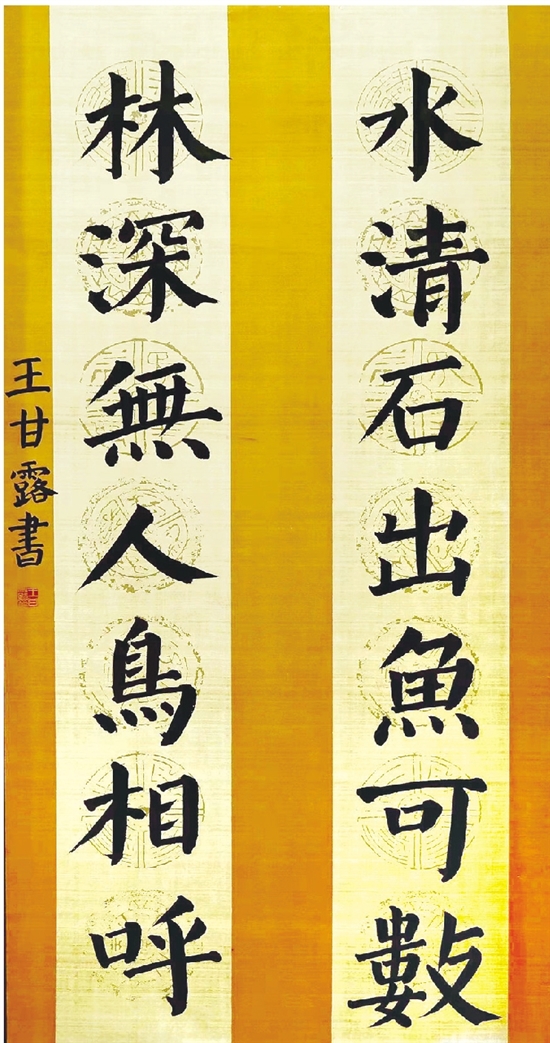 水清石出魚可數
林深無人鳥相呼
王甘露書